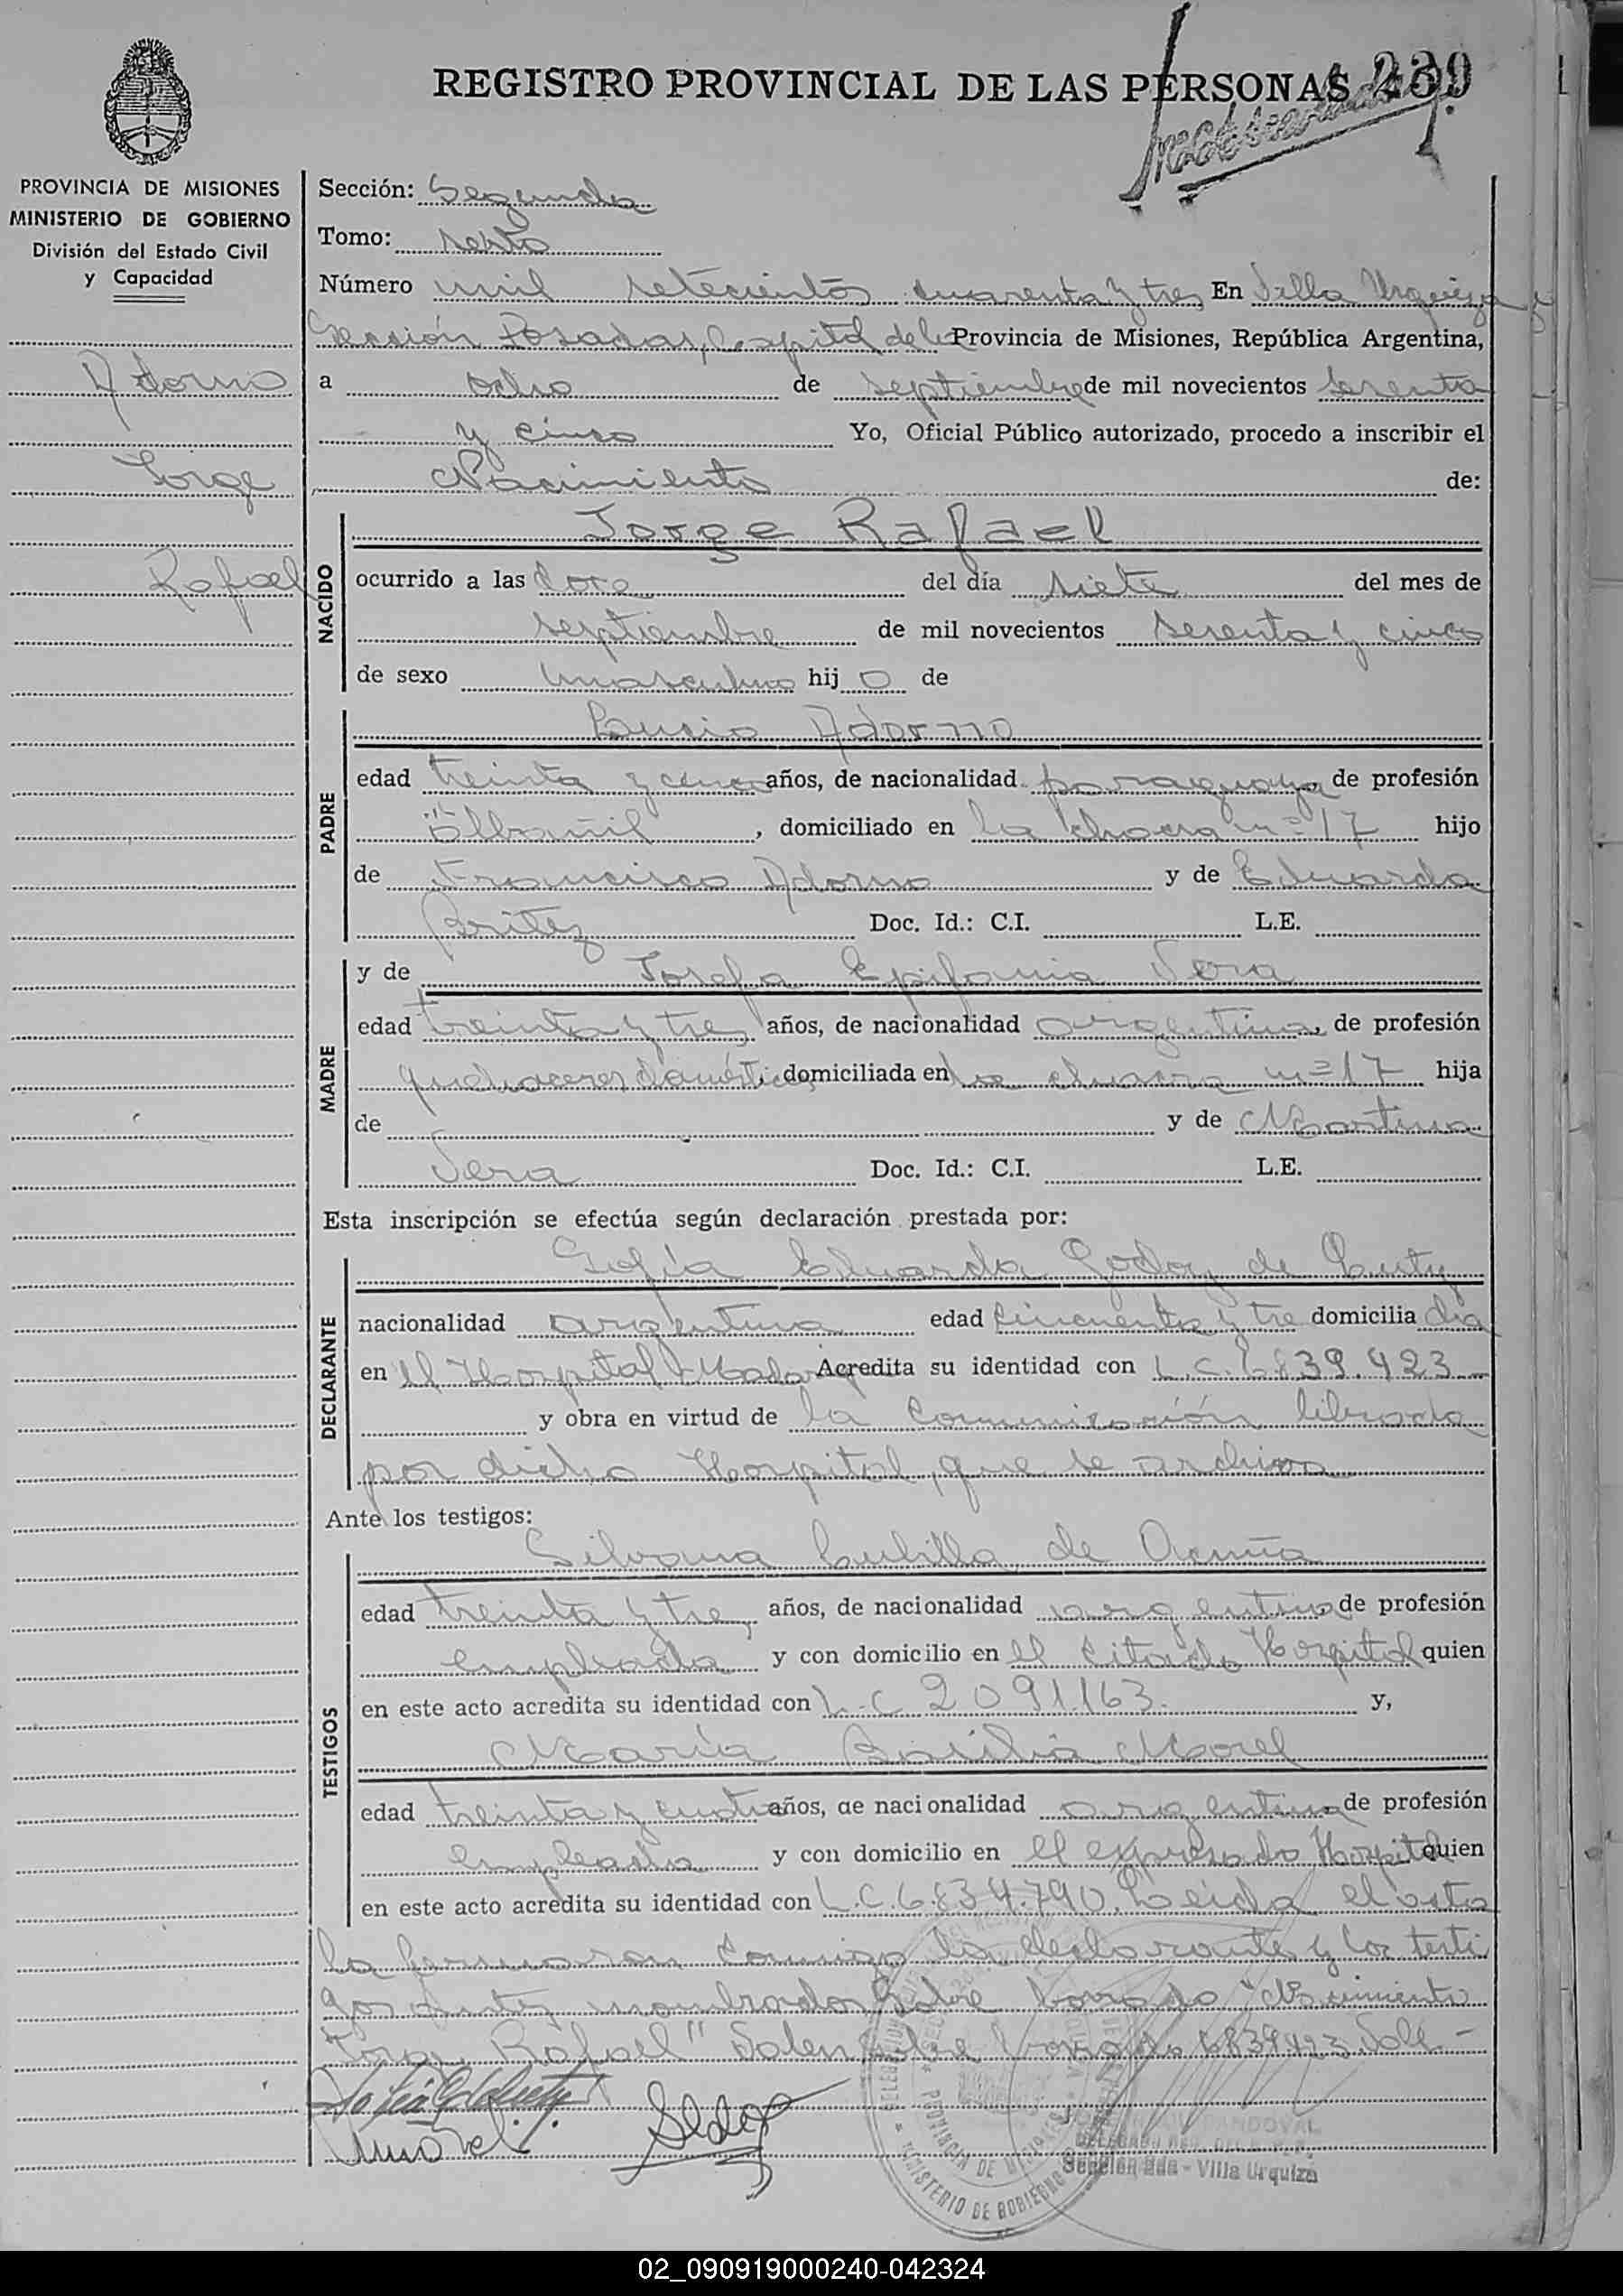 REGISTRO PROVINCIAL DE LAS PERSONAS 239
PROVINCIA DE MISIONES
MINISTERIO DE GOBIERNO
División del Estado Civil
y Capacidad
Adorno
Jorge
Rafael
Sección: Segunda
Tomo: sexto
Número mil setecientos cuarenta y tres En Villa Urquiza
Sección Posadas, Capital de la Provincia de Misiones, República Argentina,
a ocho de septiembre de mil novecientos sesenta
y cinco Yo, Oficial Público autorizado, procedo a inscribir el
Nacimiento de:
NACIDO
Jorge Rafael
ocurrido a las doce del día siete del mes de
septiembre de mil novecientos sesenta y cinco
de sexo masculino hijo de
PADRE
Lucio Adorno
edad treinta y cinco años, de nacionalidad paraguaya de profesión
albañil, domiciliado en la chacra nº 17 hijo
de Francisco Adorno y de Eduarda
Britez Doc. Id.: C.I. L.E.
MADRE
y de Josefa Epifania Vera
edad treinta y tres años, de nacionalidad argentina, de profesión
quehaceres domésticos, domiciliada en la chacra nº 17 hija
de y de Martina
Vera Doc. Id.: C.I. L.E.
Esta inscripción se efectúa según declaración prestada por:
DECLARANTE
Sofía Eduarda Godoy de
nacionalidad argentina edad cincuenta y tre domiciliada
en el Hospital Madariaga Acredita su identidad con L.C. 6839.423
y obra en virtud de la comunicación librada
por dicho Hospital, que se archiva
Ante los testigos:
TESTIGOS
Silvana Cubilla de Acuña
edad treinta y tres años, de nacionalidad argentina de profesión
empleada y con domicilio en el citado Hospital quien
en este acto acredita su identidad con L.C 2091.163. y,
María Basilia Morel
edad treinta y cuatro años, de nacionalidad argentina de profesión
empleada y con domicilio en el expresado Hospital quien
en este acto acredita su identidad con L.C. 6.834.790. Leida el acta
la firmaron conmigo la declarante y los testi
gos antes nombrados Sobre borrado "Nacimiento
Jorge Rafael" Valen Sobre borrado 6839423 Vale -
SANDOVAL
Sección 2da - Villa Urquiza
PROVINCIA DE MISIONES
MINISTERIO DE GOBIERNO
02_090919000240-042324